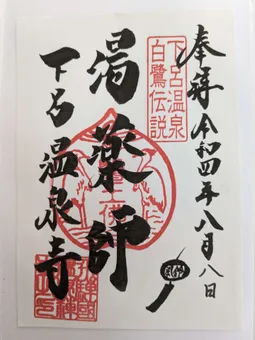 奉拝 令和四年八月八日
下呂温泉
白鷺伝説
湯薬師
下呂温泉寺